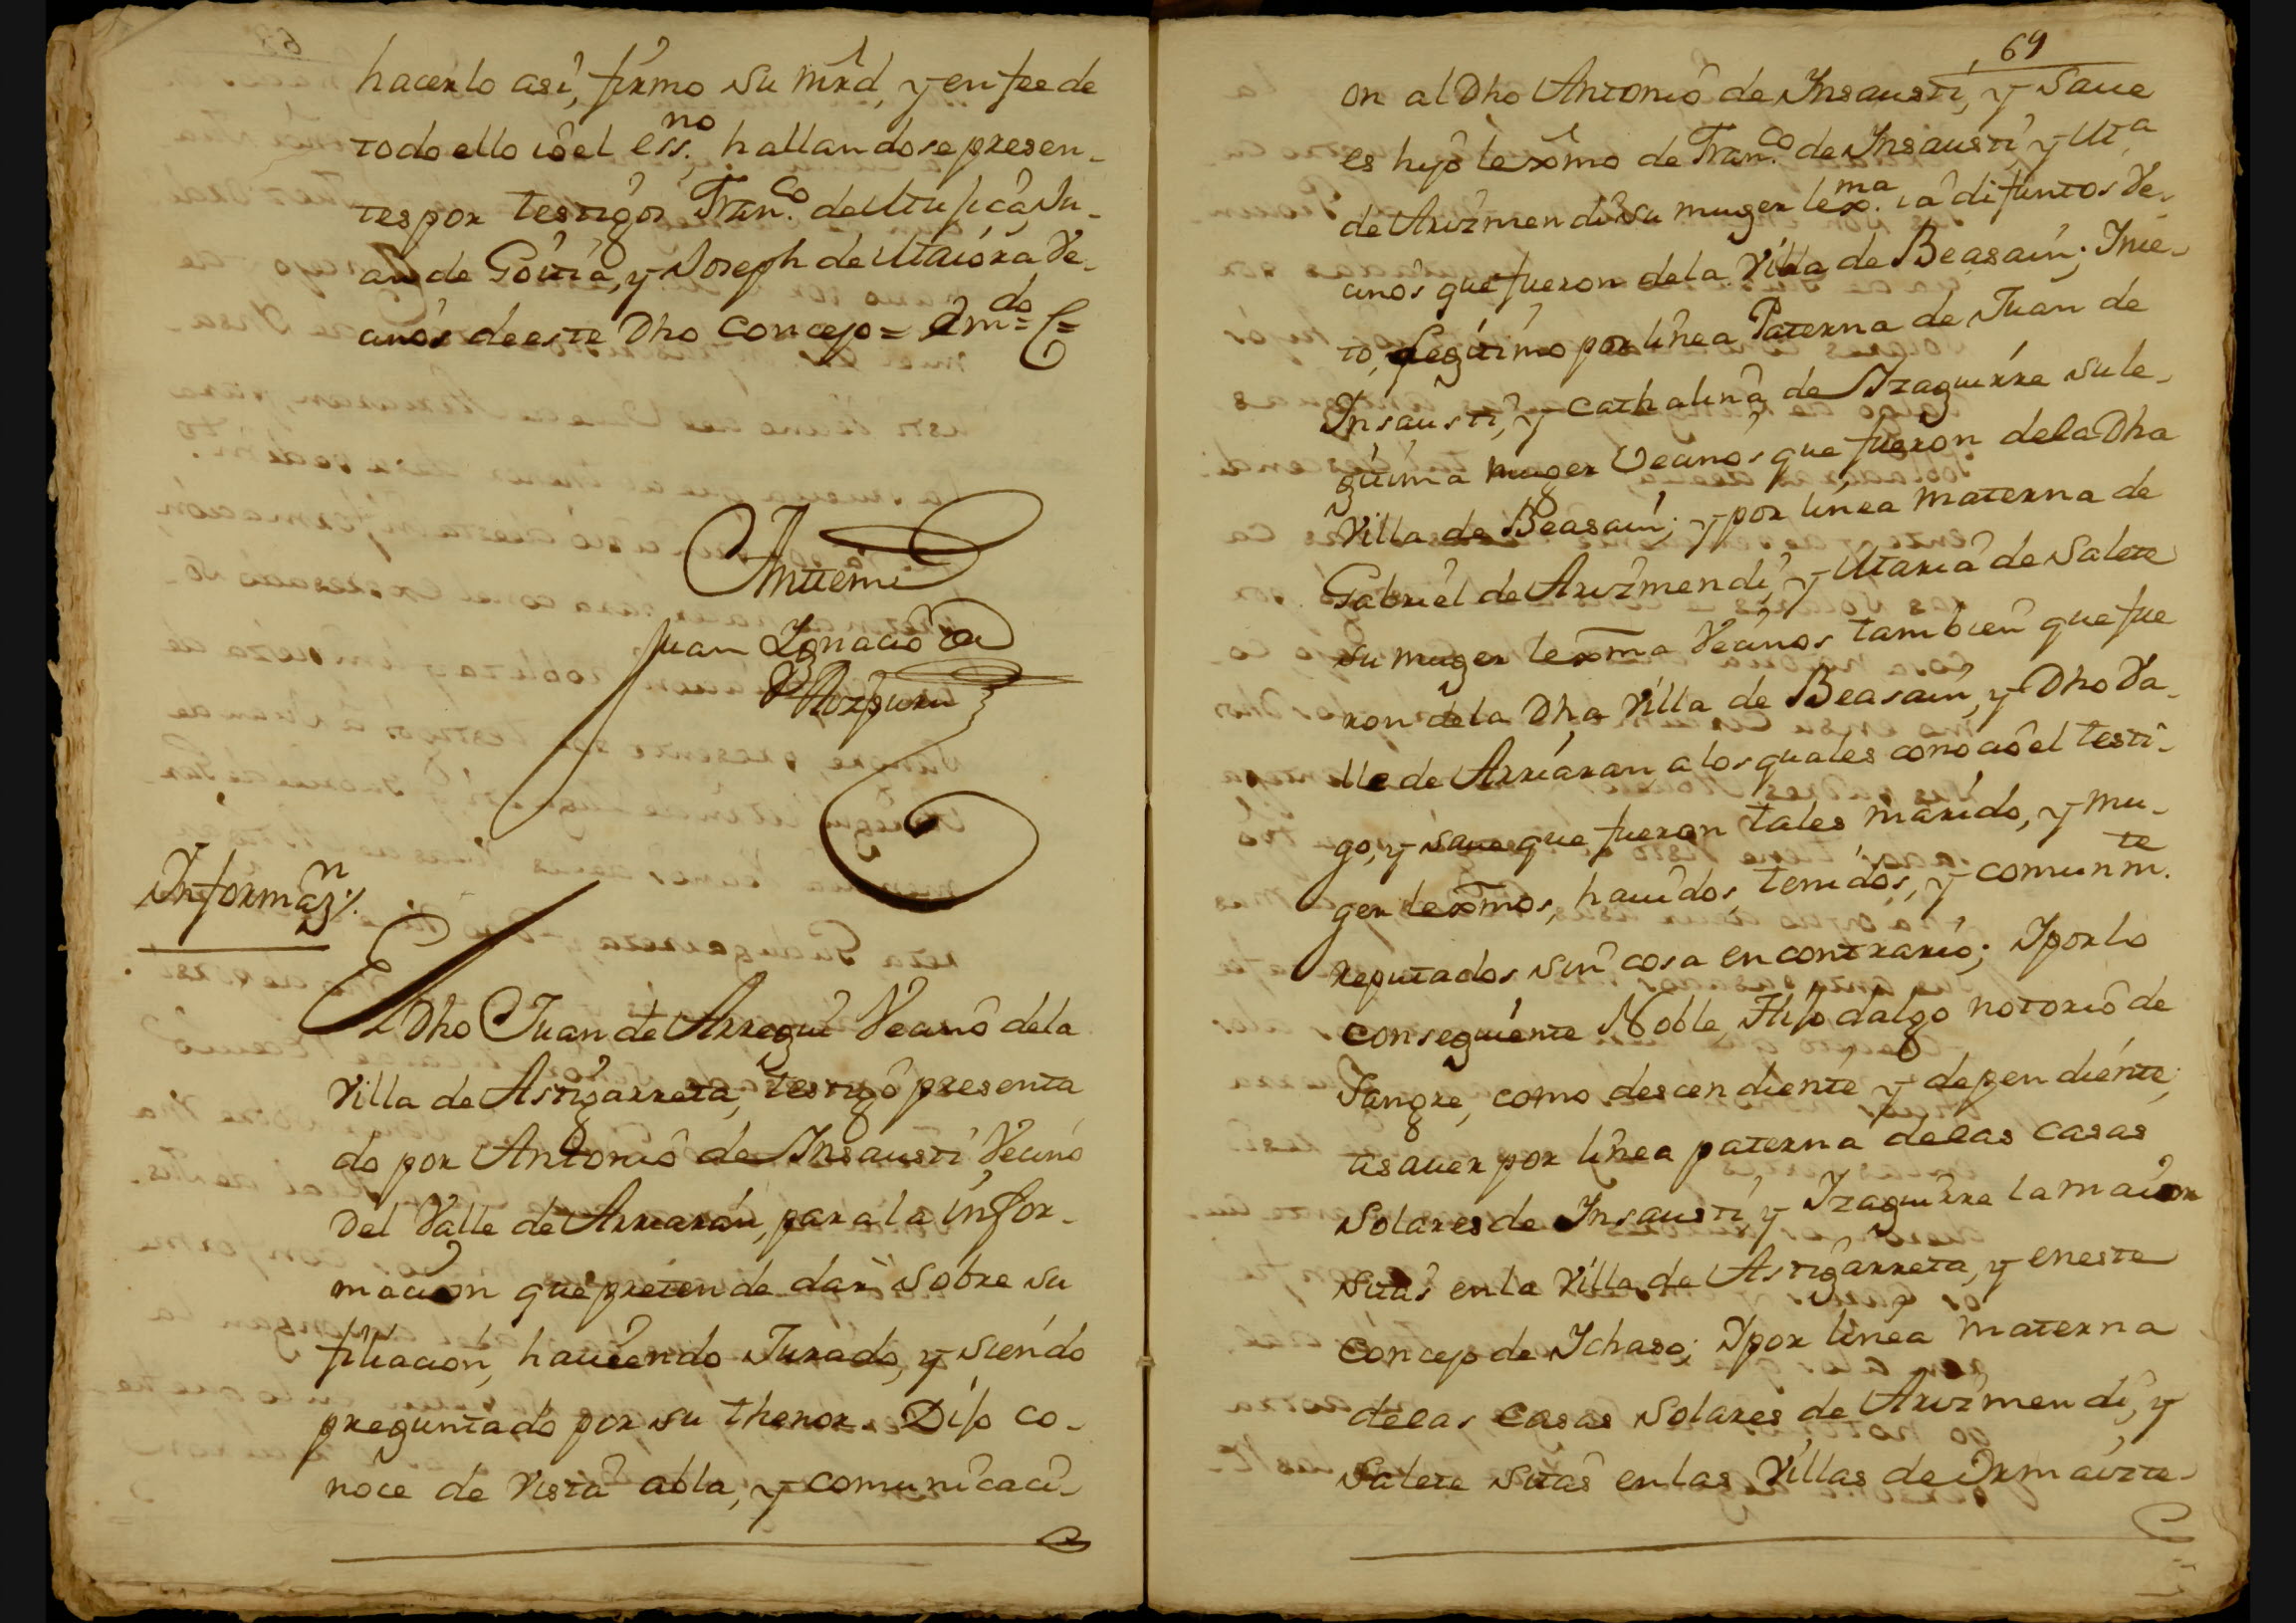 hacerlo así, firmo su mrd, y en fee de
todo ello io el ess.no hallandose presen-
tes por testigos Fran.co de Mujica, Ju-
an de Goitia, y Joseph de Maiora Ve-
cinos de este Dho Concejo = Em.do =
Ante mi
Juan Ignacio de
Aozpuru
Informaz.n
El Dho Juan de Arregui Vecino de la
Villa de Astigarreta, testigo presenta
do por Antonio de Insausti Vecino
Del Valle de Arriaran, para la infor-
macion que pretende dar sobre su
filiacion, haviendo Jurado, y siendo
preguntado por su thenor. Dijo co-
noce de Vista abla, y comunicaci-
69
on al Dho Antonio de Insausti, y save
es hijo lexmo de Fran.co de Insausti, y M.a
de Arizmendi su muger lex.ma ia difuntos Ve-
cinos que fueron de la Villa de Beasain; Y nie-
to, Legitimo por linea Paterna de Juan de
Insausti, y Cathalina de Yzaguirre su le-
gitima muger Vecinos que fueron de la Dha
Villa de Beasain; y por linea materna de
Gabriel de Arizmendi, y Maria de Salete
su muger lexma Vecinos tambien que fue
ron de la Dha Villa de Beasain, y Dho Va-
lle de Arriaran, a los quales conocio el testi-
go, y save que fueron tales marido, y mu-
ger lexmos, havidos, tenidos, y comunm.te
reputados sin cosa en contrario; Y por lo
conseguiente Noble Hijo dalgo notorio de
Sangre, como descendiente y dependiente,
es a saver por linea paterna de las casas
Solares de Insausti y Yzaguirre la maior
sitas en la Villa de Astigarreta, y en este
Concejo de Ychaso; Y por linea materna
de las Casas Solares de Arizmendi, y
Salete sitas en las Villas de Ormaizte-